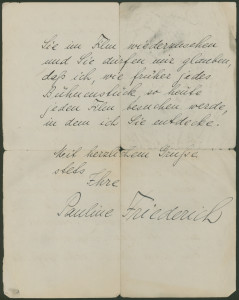 Sie im Film wiederzusehen
und Sie dürfen mir glauben,
daß ich, wie früher jedes
Bühnenstück, so heute
jeden Film besuchen werde,
in dem ich Sie entdecke.
Mit herzlichem Gruße
stets
Ihre
Pauline Friederich